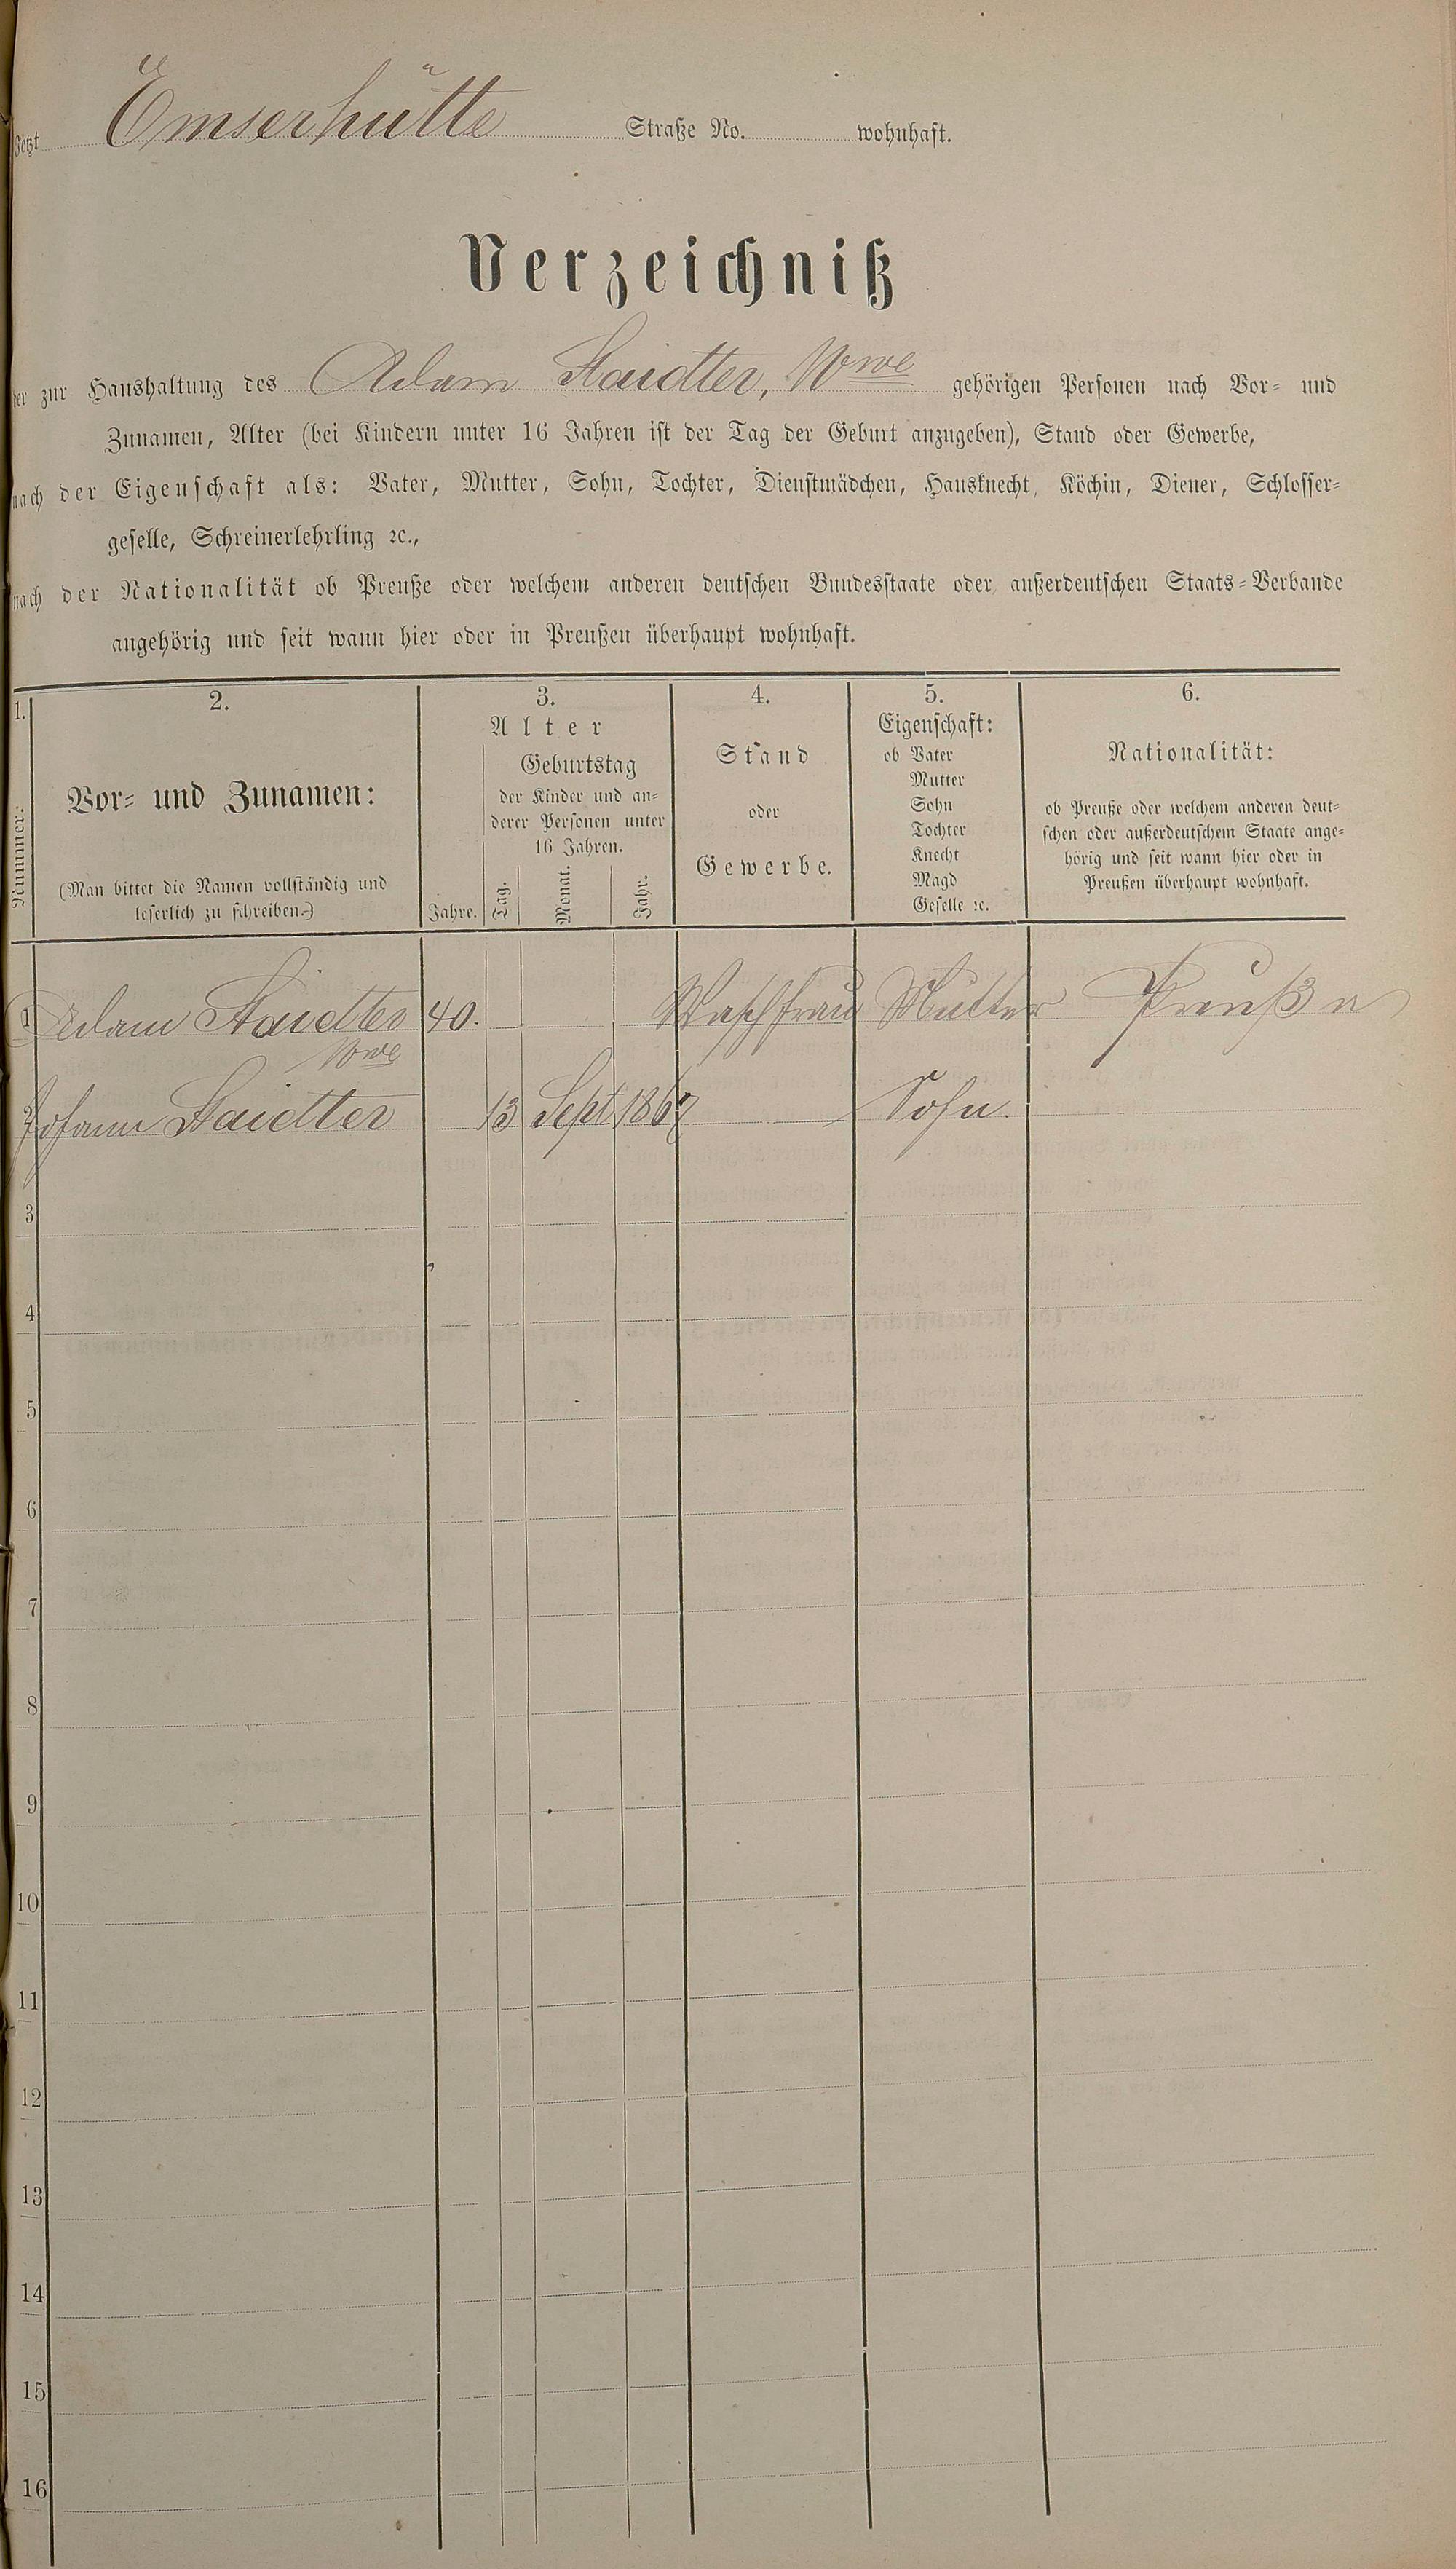 Jetzt Emserhütte Straße No. wohnhaft.
Verzeichniß
der zur Haushaltung des Adam Staidter, Wwe gehörigen Personen nach Vor- und
Zunamen, Alter (bei Kindern unter 16 Jahren ist der Tag der Geburt anzugeben), Stand oder Gewerbe,
nach der Eigenschaft als: Vater, Mutter, Sohn, Tochter, Dienstmädchen, Hausknecht, Köchin, Diener, Schlosser-
geselle, Schreinerlehrling ꝛc.,
nach der Nationalität ob Preuße oder welchem anderen deutschen Bundesstaate oder außerdeutschen Staats-Verbande
angehörig und seit wann hier oder in Preußen überhaupt wohnhaft.
1.
Nummer.
2.
Vor- und Zunamen:
(Man bittet die Namen vollständig und
leserlich zu schreiben.)
3.
Alter
Jahre.
Geburtstag
der Kinder und an-
derer Personen unter
16 Jahren.
Tag. Monat. Jahr.
4.
Stand
oder
Gewerbe.
5.
Eigenschaft:
ob Vater
Mutter
Sohn
Tochter
Knecht
Magd
Geselle ꝛc.
6.
Nationalität:
ob Preuße oder welchem anderen deut-
schen oder außerdeutschem Staate ange-
hörig und seit wann hier oder in
Preußen überhaupt wohnhaft.
1 Adam Staidter 40. Waschfrau Mutter Preuße
Wwe
2 Johann Staidter 13 Sept 1867 Sohn.
3
4
5
6
7
8
9
10
11
12
13
14
15
16